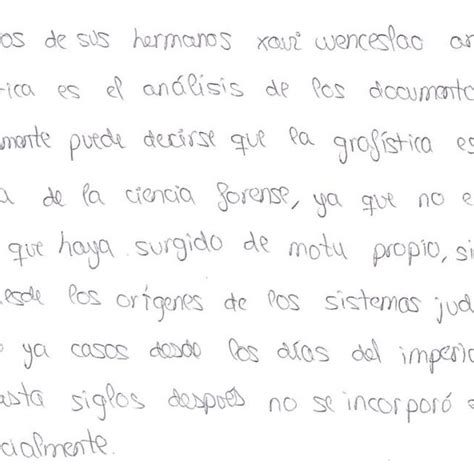 os de sus hermanos xavi wenceslao or
tica es el análisis de los documento
mente puede decirse que la grafística es
a de la ciencia forense, ya que no e
que haya surgido de motu propio, si
desde los orígenes de los sistemas jud
ya casos desde los días del imperio
asta siglos después no se incorporó
cialmente.